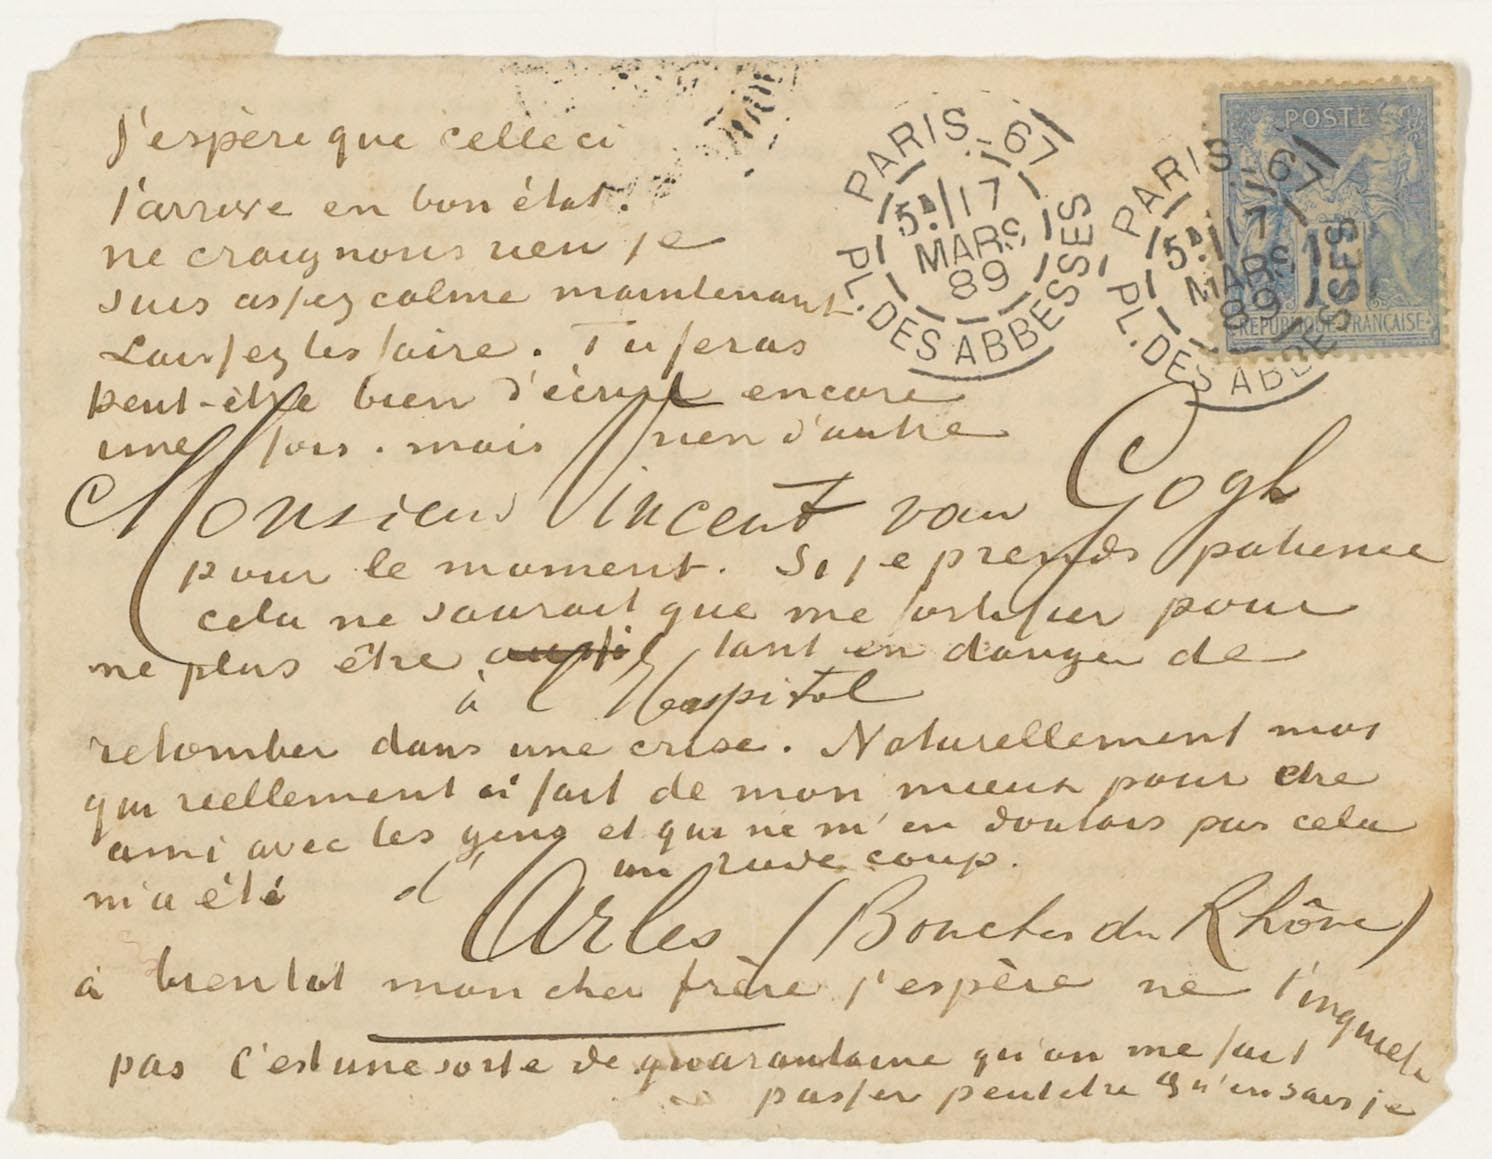 J'espère que celleci
t'arrive en bon état.
ne craignons rien je
suis assez calme maintenant
Laissez les faire. Tu feras
peut-être bien d'écrire encore
une fois. mais rien d'autre
Monsieur Vincent van Gogh
pour le moment. Si je prends patience
cela ne saurait que me fortifier pour
ne plus être aussi tant en danger de
à l'Hospital
retomber dans une crise. Naturellement moi
qui reellement ai fait de mon mieux pour etre
ami avec les gens et qui ne m'en doutais pas cela
m'a été un rude coup.
d'Arles (Bouches du Rhône)
à bientot mon cher frère j'espère ne t'inquiete
pas C'est une sorte de quarantaine qu'on me fait
passer peutetre qu'en sais je
PARIS.-67
5E/17
MARS
89
PL. DES ABBESSES
PARIS.-67
17
MARS
89
PL. DES ABBESSES
POSTE
15
REPUBLIQUE FRANÇAISE